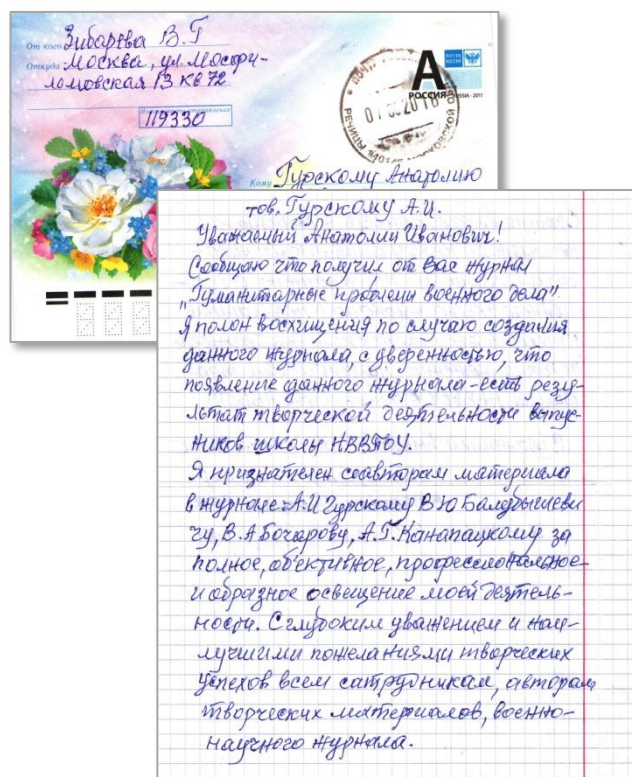 От кого Зибарева В.Г
Откуда Москва, ул Мосфи-
ломовская 13 кв 72
119330
А
РОССИЯ
RUSSIA - 2011
Кому Гурскому Анатолию
тов. Гурскому А.И.
Уважаемый Анатолий Иванович!
Сообщаю что получил от Вас журнал
„Гуманитарные проблемы военного дела"
Я полон восхищения по случаю создания
данного журнала, с уверенностью, что
появление данного журнала - есть резу-
льтат творческой деятельности выпус-
ников школы НВВПОУ.
Я признателен соавторам материала
в журнале: А.И Гурскому В Ю Балабушеви
чу, В.А Бочарову, А.Г. Канапацкому за
полное, объективное, профессиональное
и образное освещение моей деятель-
ности. С глубоким уважением и наи-
лучшими пожеланиями творческих
успехов всем сатрудникам, авторам
творческих материалов, военно-
научного журнала.